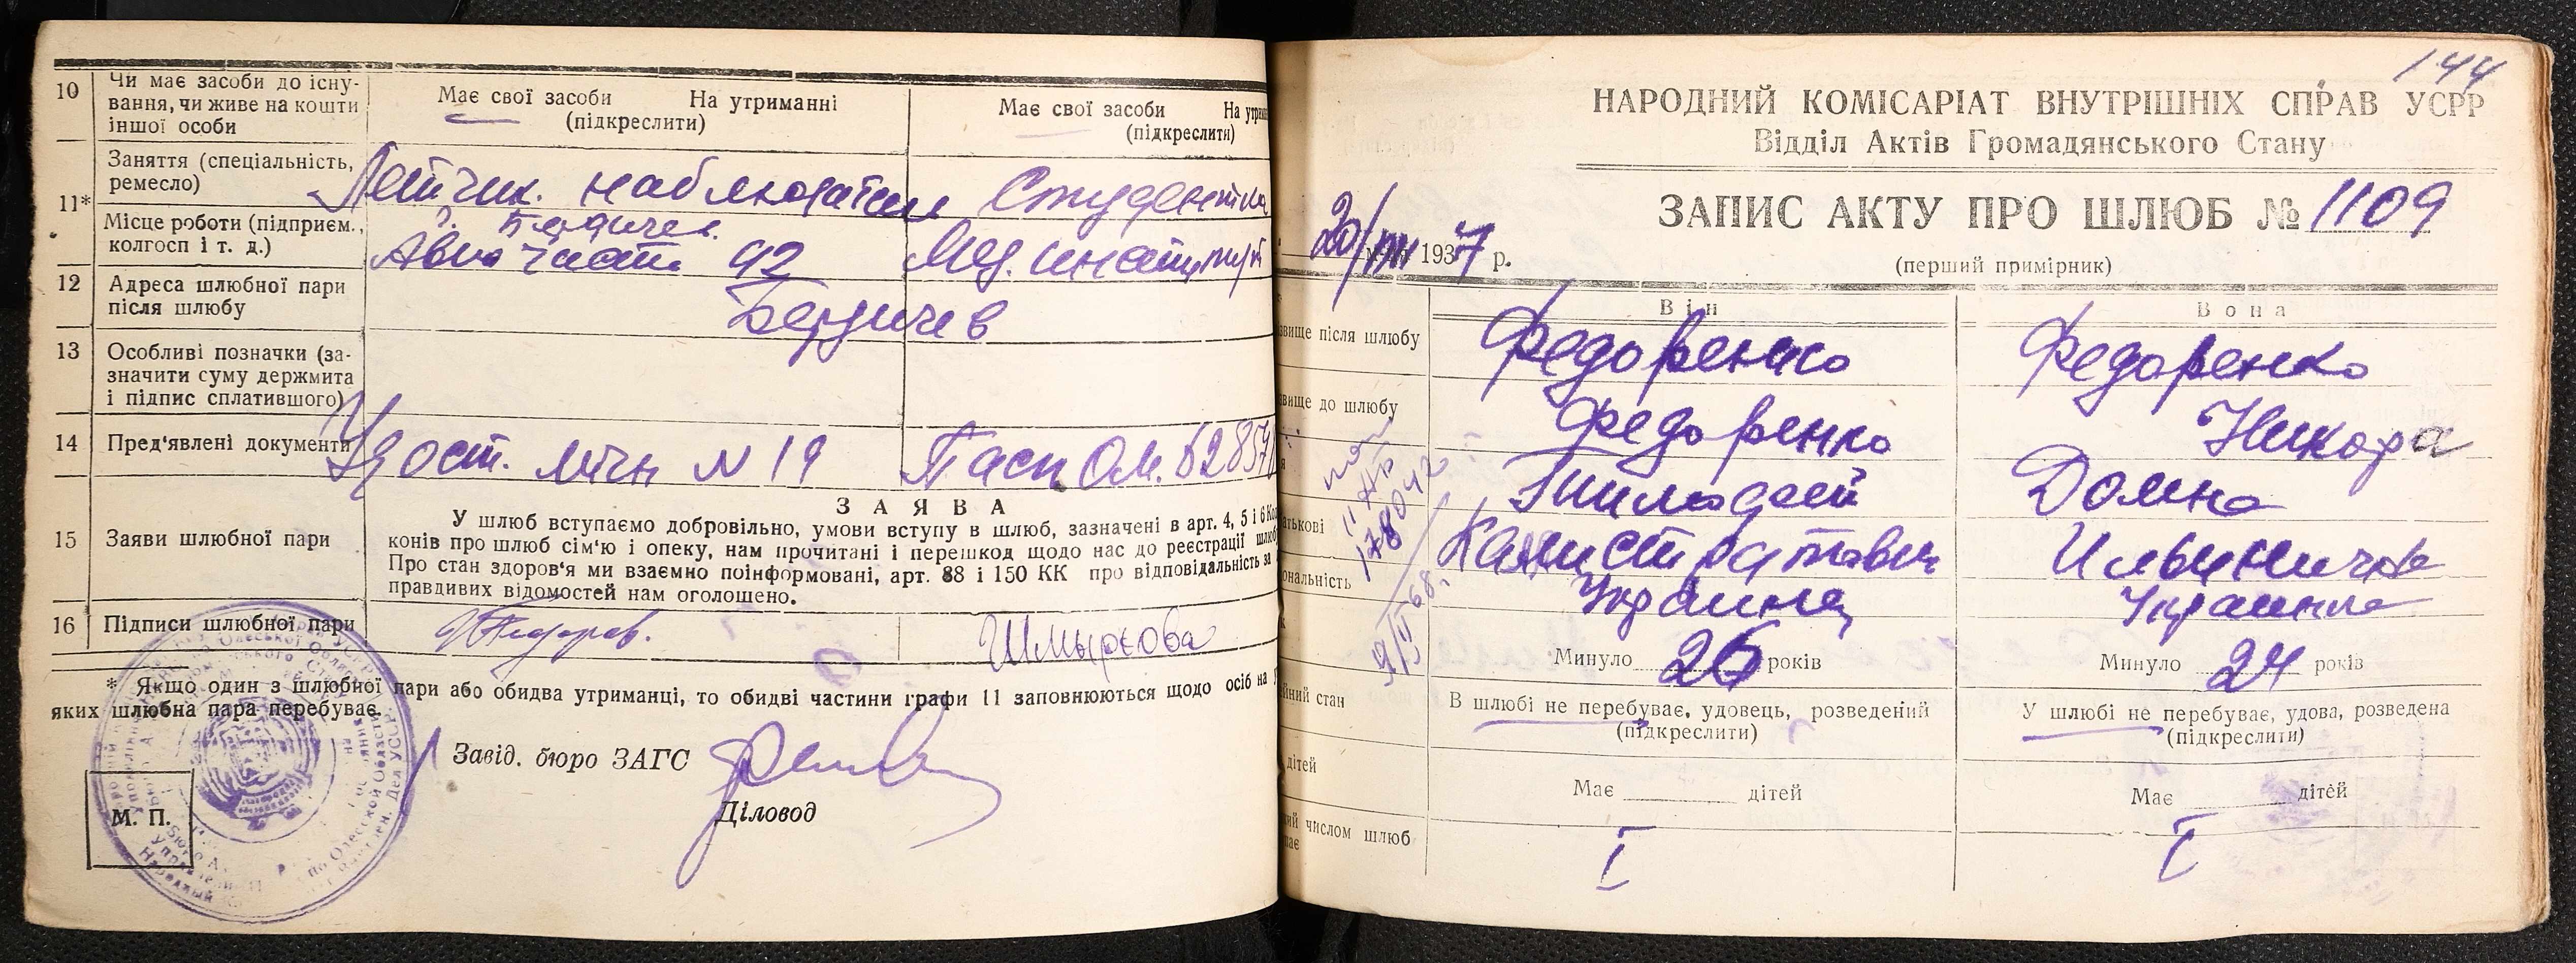 10
Чи має засоби до існу-
вання, чи живе на кошти
іншої особи
Має свої засоби На утриманні
(підкреслити)
Має свої засоби На утрим
(підкреслити)
11*
Заняття (спеціальність,
ремесло)
Летчик. наблюдатель
Студентка
Місце роботи (підприєм.,
колгосп і т. д.)
Авио часть 92
Мед. институт
12
Адреса шлюбної пари
після шлюбу
Бердичев
13
Особливі позначки (за-
значити суму держмита
і підпис сплатившого)
14
Пред'явлені документи
Удост. личн N 19
Пасп ОМ. 62857
15
Заяви шлюбної пари
ЗАЯВА
У шлюб вступаємо добровільно, умови вступу в шлюб, зазначені в арт. 4, 5 і 6 Ко
конів про шлюб сім'ю і опеку, нам прочитані і перешкод щодо нас до реєстрації шлюб
Про стан здоров'я ми взаємно поінформовані, арт. 88 і 150 КК про відповідальність за
правдивих відомостей нам оголошено.
16
Підписи шлюбної пари
Шмырьова
* Якщо один з шлюбної пари або обидва утриманці, то обидві частини графи 11 заповнюються щодо осіб на
яких шлюбна пара перебуває.
Завід. бюро ЗАГС
Діловод
М. П.
144
НАРОДНИЙ КОМІСАРІАТ ВНУТРІШНІХ СПРАВ УСРР
Відділ Актів Громадянського Стану
ЗАПИС АКТУ ПРО ШЛЮБ № 1109
20/VIII 1937 р.
(перший примірник)
Він
Вона
звище після шлюбу
Федоренко
Федоренко
звище до шлюбу
Федоренко
Тимофей
Домна
атькові
Калистратович
Ильинична
ональність
Украинец
Украинка
178042
9/II 68г.
Минуло 26 років
Минуло 24 років
йний стан
В шлюбі не перебуває, удовець, розведений
(підкреслити)
У шлюбі не перебуває, удова, розведена
(підкреслити)
дітей
Має дітей
Має дітей
кий числом шлюб
I
I